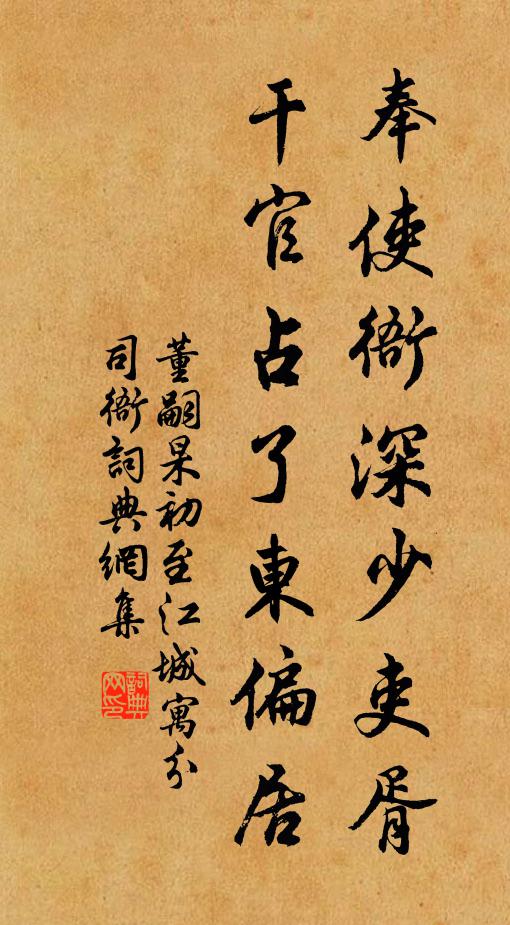 奉使衙深少吏胥
干官占了東偏居
董嗣杲初至江城寓分
司衙詞典網集
詞典網印